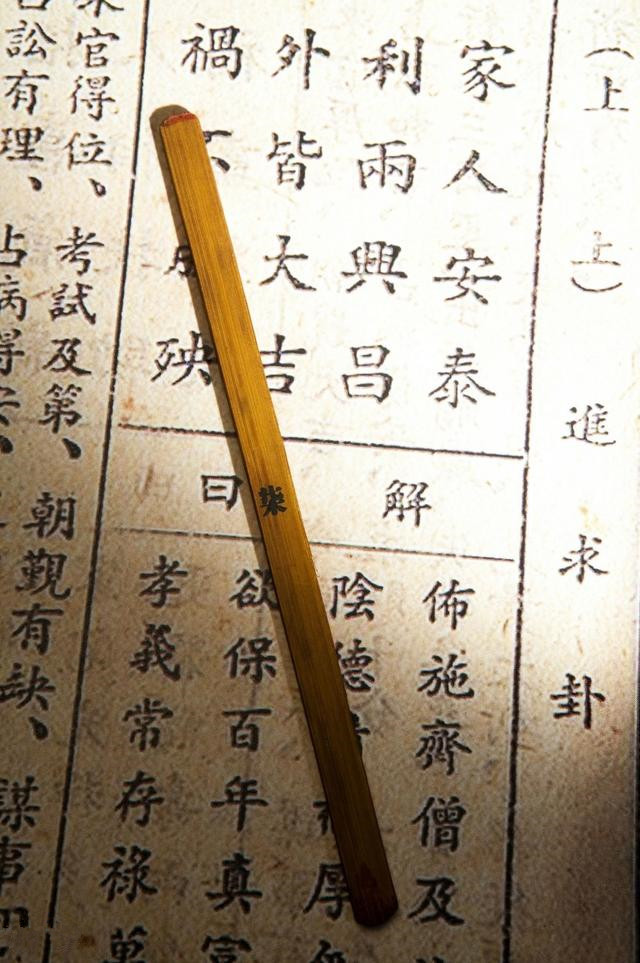 （上上）進求卦
家人安泰
利兩興昌
外皆大吉
禍殃
解曰
佈施齊僧及
陰德厚
欲保百年真富
孝義常存祿萬
柒
求官得位、考試及第、朝覲有缺、謀事
訟有理、占病得安、